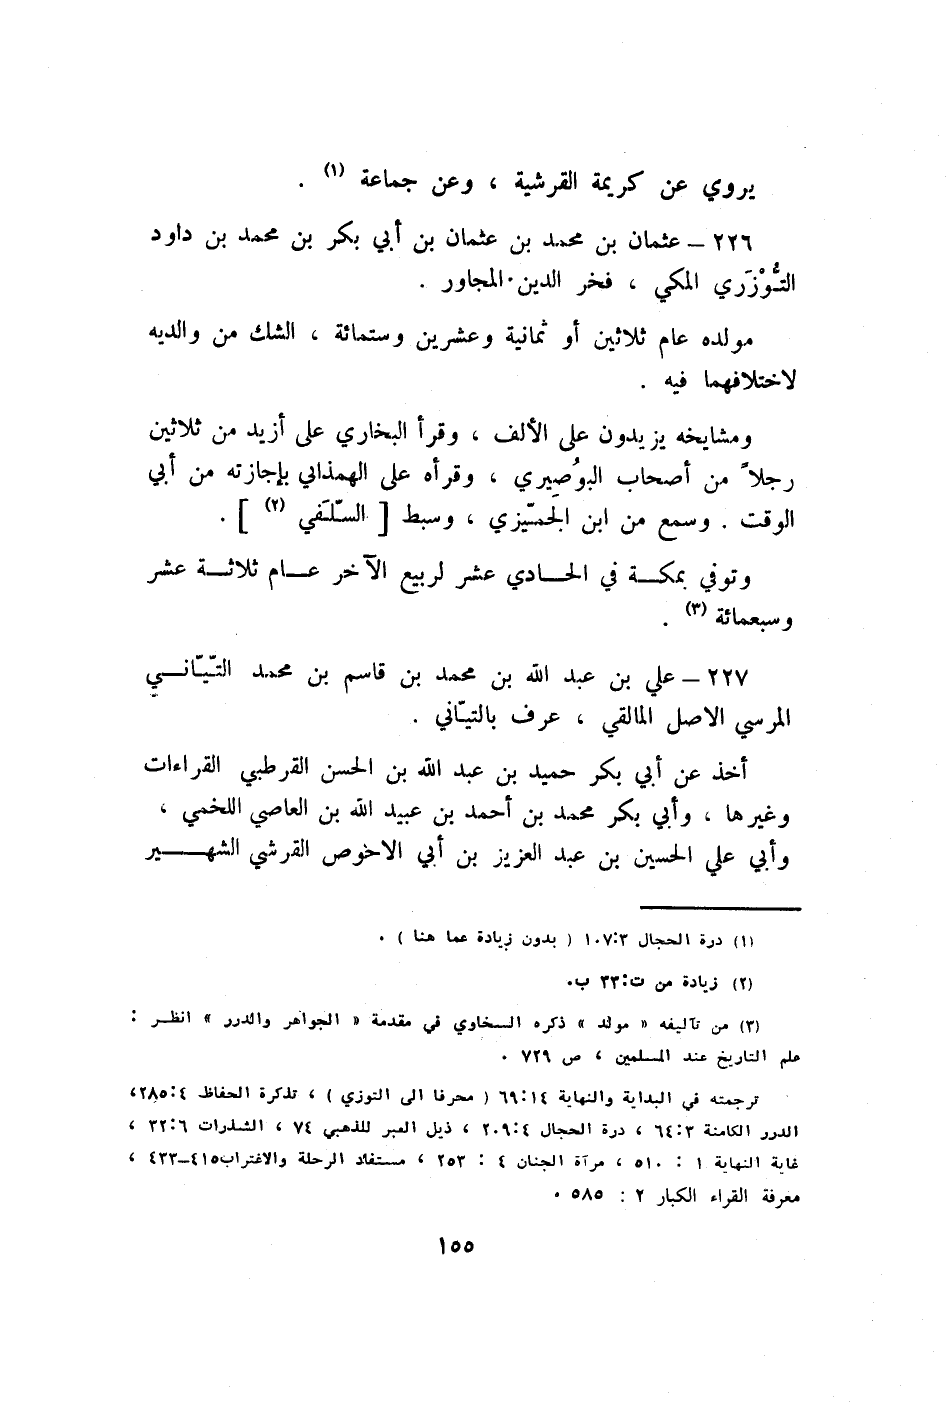 يروي عن كريمة القرشية ، وعن جماعة (١) .
٢٢٦ – عثمان بن محمد بن عثمان بن أبي بكر بن محمد بن داود
التُّوْزَري المكي ، فخر الدين المجاور .
مولده عام ثلاثين أو ثمانية وعشرين وستمائة ، الشك من والديه
لاختلافهما فيه .
ومشايخه يزيدون على الألف ، وقرأ البخاري على أزيد من ثلاثين
رجلاً من أصحاب البوُصِيري ، وقرأه على الهمذابي بإجازته من أبي
الوقت . وسمع من ابن الجمّيزي ، وسبط [ السّلَفي (٢) ] .
وتوفي بمكـة في الحـادي عشر لربيع الآخر عـام ثلاثـة عشر
وسبعمائة (٣) .
٢٢٧ – علي بن عبد الله بن محمد بن قاسم بن محمد التّيّانـي
المرسي الاصل المالقي ، عرف بالتيّاني .
أخذ عن أبي بكر حميد بن عبد الله بن الحسن القرطبي القراءات
وغيرها ، وأبي بكر محمد بن أحمد بن عبيد الله بن العاصي اللخمي ،
وأبي علي الحسين بن عبد العزيز بن أبي الاخوص القرشي الشهـير
(١) درة الحجال ٣:‏١٠٧ ( بدون زيادة عما هنا ) .
(٢) زيادة من ت:٣٣ ب.
(٣) من تآليفه « مولد » ذكره السخاوي في مقدمة « الجواهر والدرر » انظـر :
علم التاريخ عند المسلمين ، ص ٧٢٩ .
ترجمته في البداية والنهاية ١٤:‏٦٩ ( محرفا الى التوزي ) ، تذكرة الحفاظ ٤:‏٢٨٥،
الدرر الكامنة ٣:‏٦٤ ، درة الحجال ٤:‏٢٠٩ ، ذيل العبر للذهبي ٧٤ ، الشذرات ٦:‏٣٢ ،
غاية النهاية ١ : ٥١٠ ، مرآة الجنان ٤ : ٢٥٣ ، مستفاد الرحلة والاغتراب٤١٥–٤٣٣ ،
معرفة القراء الكبار ٢ : ٥٨٥ .
١٥٥